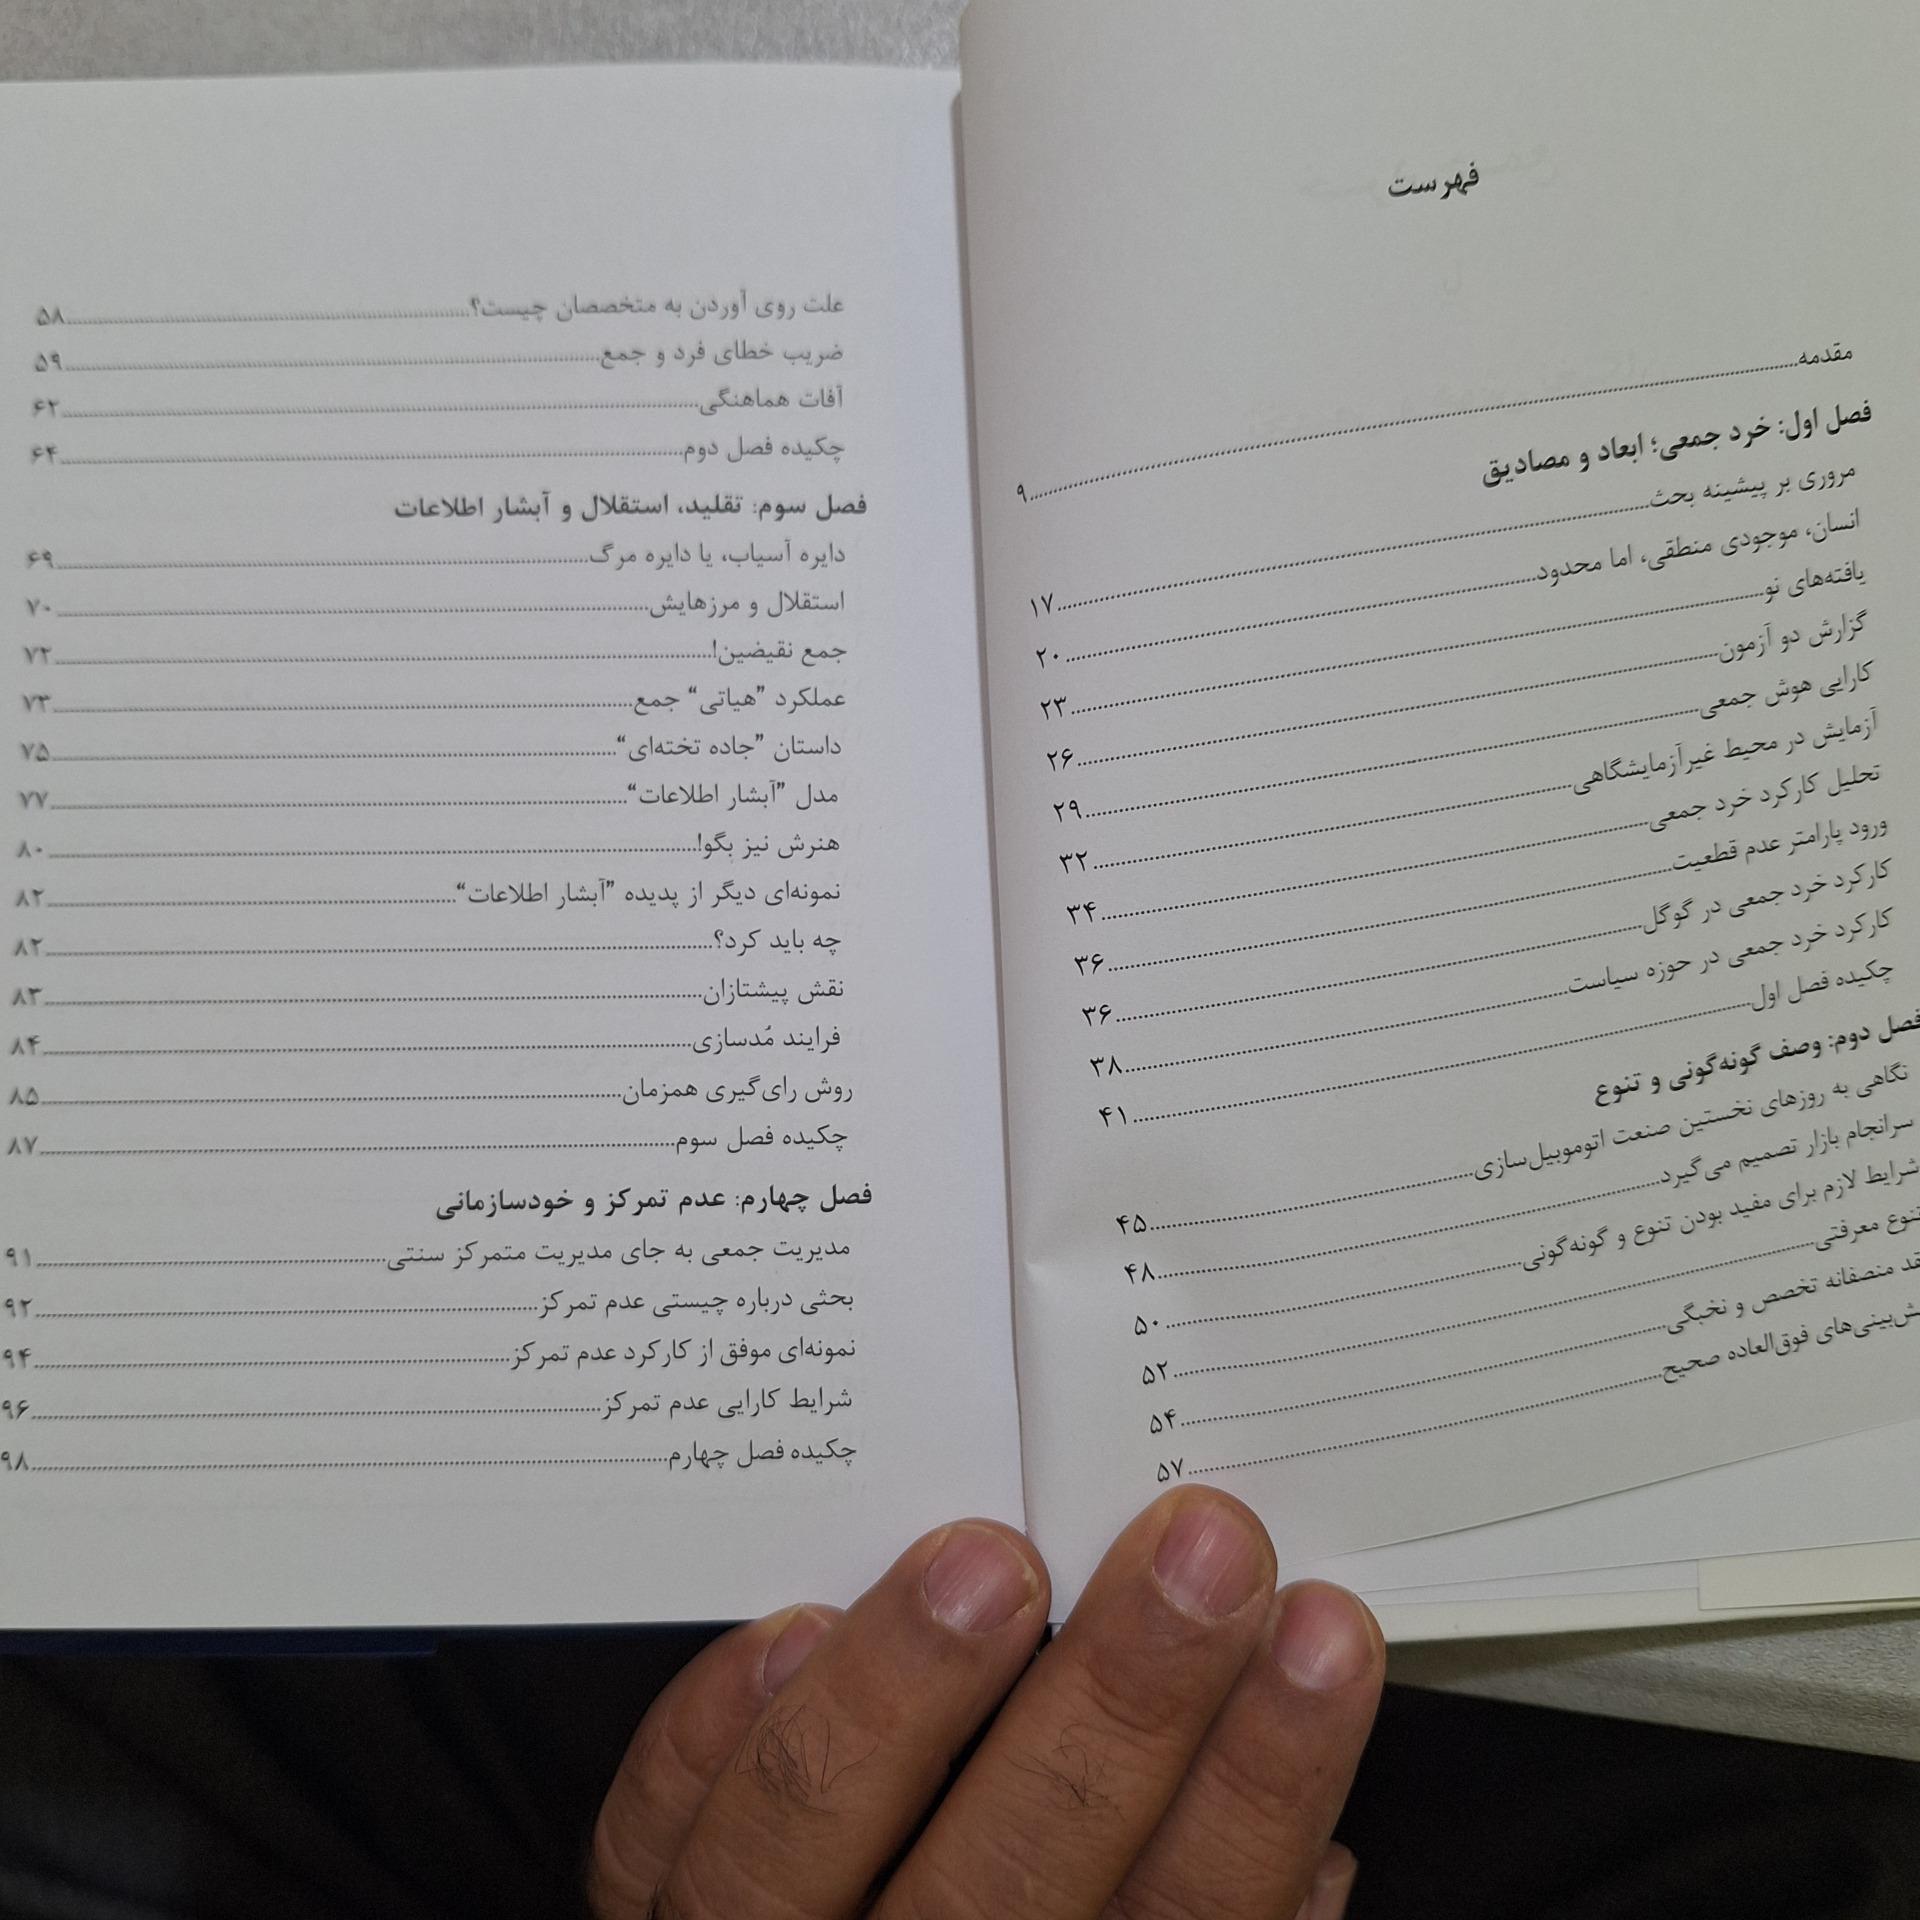 فهرست
مقدمه..........۹
فصل اول: خرد جمعی؛ ابعاد و مصادیق
مروری بر پیشینه بحث..........۱۷
انسان، موجودی منطقی، اما محدود..........۲۰
یافته‌های نو..........۲۳
گزارش دو آزمون..........۲۶
کارایی هوش جمعی..........۲۹
آزمایش در محیط غیرآزمایشگاهی..........۳۲
تحلیل کارکرد خرد جمعی..........۳۴
ورود پارامتر عدم قطعیت..........۳۶
کارکرد خرد جمعی در گوگل..........۳۶
کارکرد خرد جمعی در حوزه سیاست..........۳۸
چکیده فصل اول..........۴۱
فصل دوم: وصف گونه‌گونی و تنوع
نگاهی به روزهای نخستین صنعت اتوموبیل‌سازی..........۴۵
سرانجام بازار تصمیم می‌گیرد..........۴۸
شرایط لازم برای مفید بودن تنوع و گونه‌گونی..........۵۰
تنوع معرفتی..........۵۲
منصفانه تخصص و نخبگی..........۵۴
فوق‌العاده صحیح..........۵۷
علت روی آوردن به متخصصان چیست؟..........۵۸
ضریب خطای فرد و جمع..........۵۹
آفات هماهنگی..........۶۲
چکیده فصل دوم..........۶۴
فصل سوم: تقلید، استقلال و آبشار اطلاعات
دایره آسیاب، یا دایره مرگ..........۶۹
استقلال و مرزهایش..........۷۰
جمع نقیضین!..........۷۲
عملکرد ”هیاتی“ جمع..........۷۳
داستان ”جاده تخته‌ای“..........۷۵
مدل ”آبشار اطلاعات“..........۷۷
هنرش نیز بگو!..........۸۰
نمونه‌ای دیگر از پدیده ”آبشار اطلاعات“..........۸۲
چه باید کرد؟..........۸۲
نقش پیشتازان..........۸۳
فرایند مُدسازی..........۸۴
روش رای‌گیری همزمان..........۸۵
چکیده فصل سوم..........۸۷
فصل چهارم: عدم تمرکز و خودسازمانی
مدیریت جمعی به جای مدیریت متمرکز سنتی..........۹۱
بحثی درباره چیستی عدم تمرکز..........۹۲
نمونه‌ای موفق از کارکرد عدم تمرکز..........۹۴
شرایط کارایی عدم تمرکز..........۹۶
چکیده فصل چهارم..........۹۸